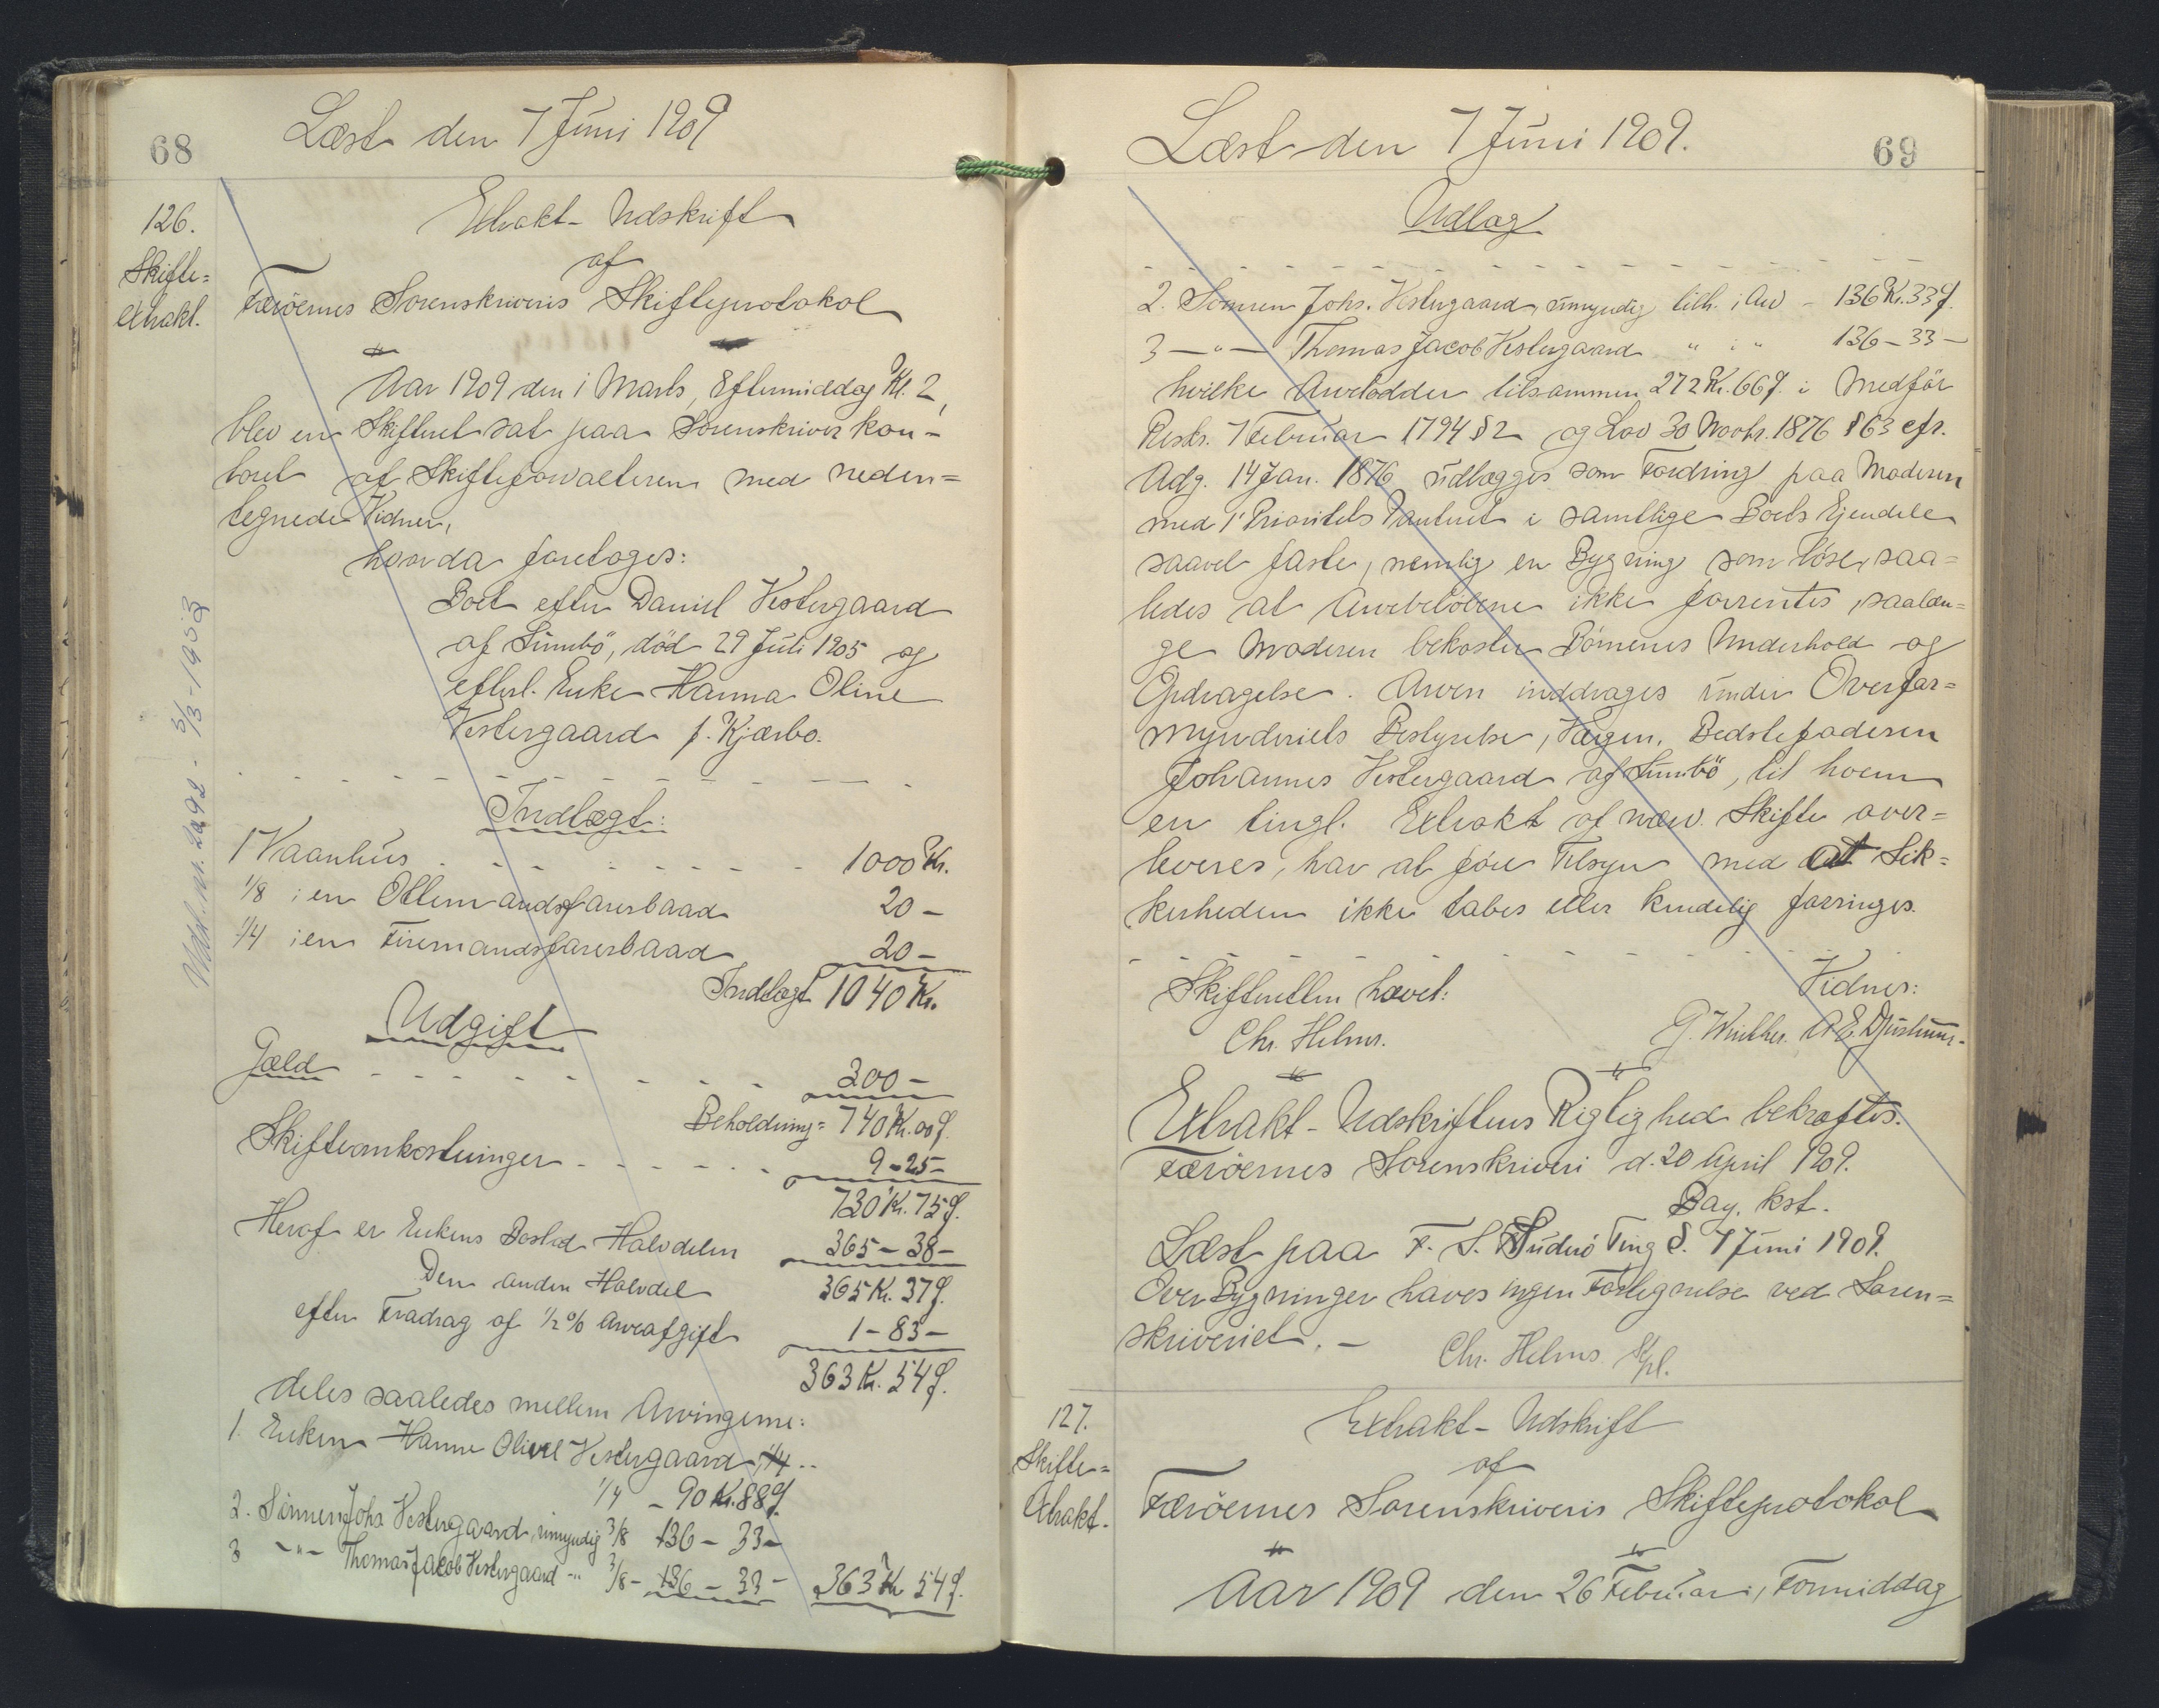 68
Læst den 7 Juni 1909
126.
Skifte=
extrakt.
Extrakt-Udskrift
af
Færöernes Sorenskriveris Skifteprotokol
Aar 1909 den 1 Marts, Eftermiddag Kl. 2,
blev en Skifteret sat paa Sorenskriverkon-
toret af Skifteforvalteren med neden=
tegnede Vidner,
hvor da foretoges:
Boet efter Daniel Vestergaard
af Sumbö, död 29 Juli 1905 og
efterl. Enke Hanna Oline
Vestergaard f. Kjærbo.
Indtægt:
1 Vaanhus 1000 Kr.
1/8 i en Ottemandsfarerbaad 20 -
1/4 i en Firemandsfarerbaad 20 -
Indtægt 1040 Kr.
Udgift
Gæld 300 -
Beholdning = 740 Kr. 00 Ø.
Skifteomkostninger 9 - 25 -
730 Kr. 75 Ø.
Heraf er Enkens Boslod Halvdelen 365 - 38 -
Den anden Halvdel 365 Kr. 37 Ø.
efter Fradrag af 1/2 % Arveafgift 1 - 83 -
363 Kr. 54 Ø.
deles saaledes mellem Arvingerne:
1. Enken Hanne Oline Vestergaard, 1/4
1/4 - 90 Kr. 88 Ø.
2. Sönnen Johs Vestergaard, umyndig 3/8 136 - 33 -
3 - " - Thomas Jacob Vestergaard - " 3/8 - 136 - 33 - 363 Kr 54 Ø.
3/3 - 1953
69
Læst den 7 Juni 1909.
Udlæg
2. Sönnen Johs. Vestergaard, umyndig tilk. i Arv - 136 Kr. 33 Ø.
3 - " - Thomas Jacob Vestergaard " i " 136 - 33 -
hvilke Arvelodder tilsammen 272 Kr. 66 Ø. i Medför
Reskr. 7 Februar 1794 § 2 og Lov 30 Novbr. 1876 § 63 cfr.
Adg. 14 Jan. 1876 udlægges som Fordring paa Moderen
med 1' Prioritets Panteret i samtlige Boets Ejendele
saavel faste, nemlig en Bygning som löse, saa=
ledes at Arvebelöbene ikke forrentes, saalæn=
ge Moderen bekoster Börnenes Underhold og
Opdragelse. Arven inddrages under Overfor=
mynderiets Bestyrelse, Værgen, Bedstefaderen
Johannes Vestergaard af Sumbö, til hvem
en tingl. Extrakt af nærv. Skifte over=
leveres, har at före Tilsyn med at Sik=
kerheden ikke tabes eller kendelig forringes.
Skifteretten hævet: Vidner:
Chr. Helms. G. Winther. A. E. Djurhuus.
Extrakt-Udskriftens Rigtighed bekræftes.
Færöernes Sorenskriveri d. 20 April 1909.
Bay. kst.
Læst paa F. S. Suderö Ting d. 7 Juni 1909.
Over Bygninger haves ingen Fortegnelse ved Soren=
skriveriet. -
Chr. Helms
127.
Skifte=
extrakt.
Extrakt-Udskrift
af
Færöernes Sorenskriveris Skifteprotokol
Aar 1909 den 26 Februar, Formiddag